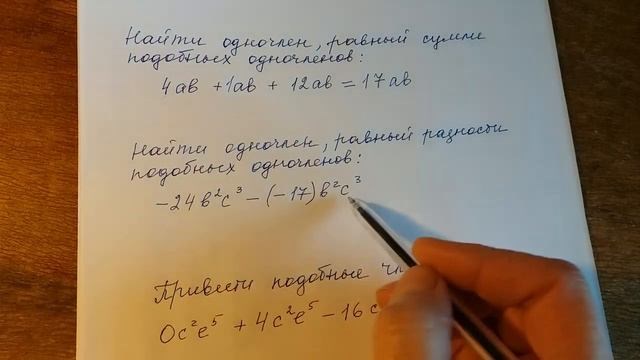 Найти одночлен, равный сумме
подобных одночленов:
4ab + 1ab + 12ab = 17ab
Найти одночлен, равный разности
подобных одночленов:
-24b²c³ - (-17)b²c³
Привести подобные
0c²e⁵ + 4c²e⁵ - 16c